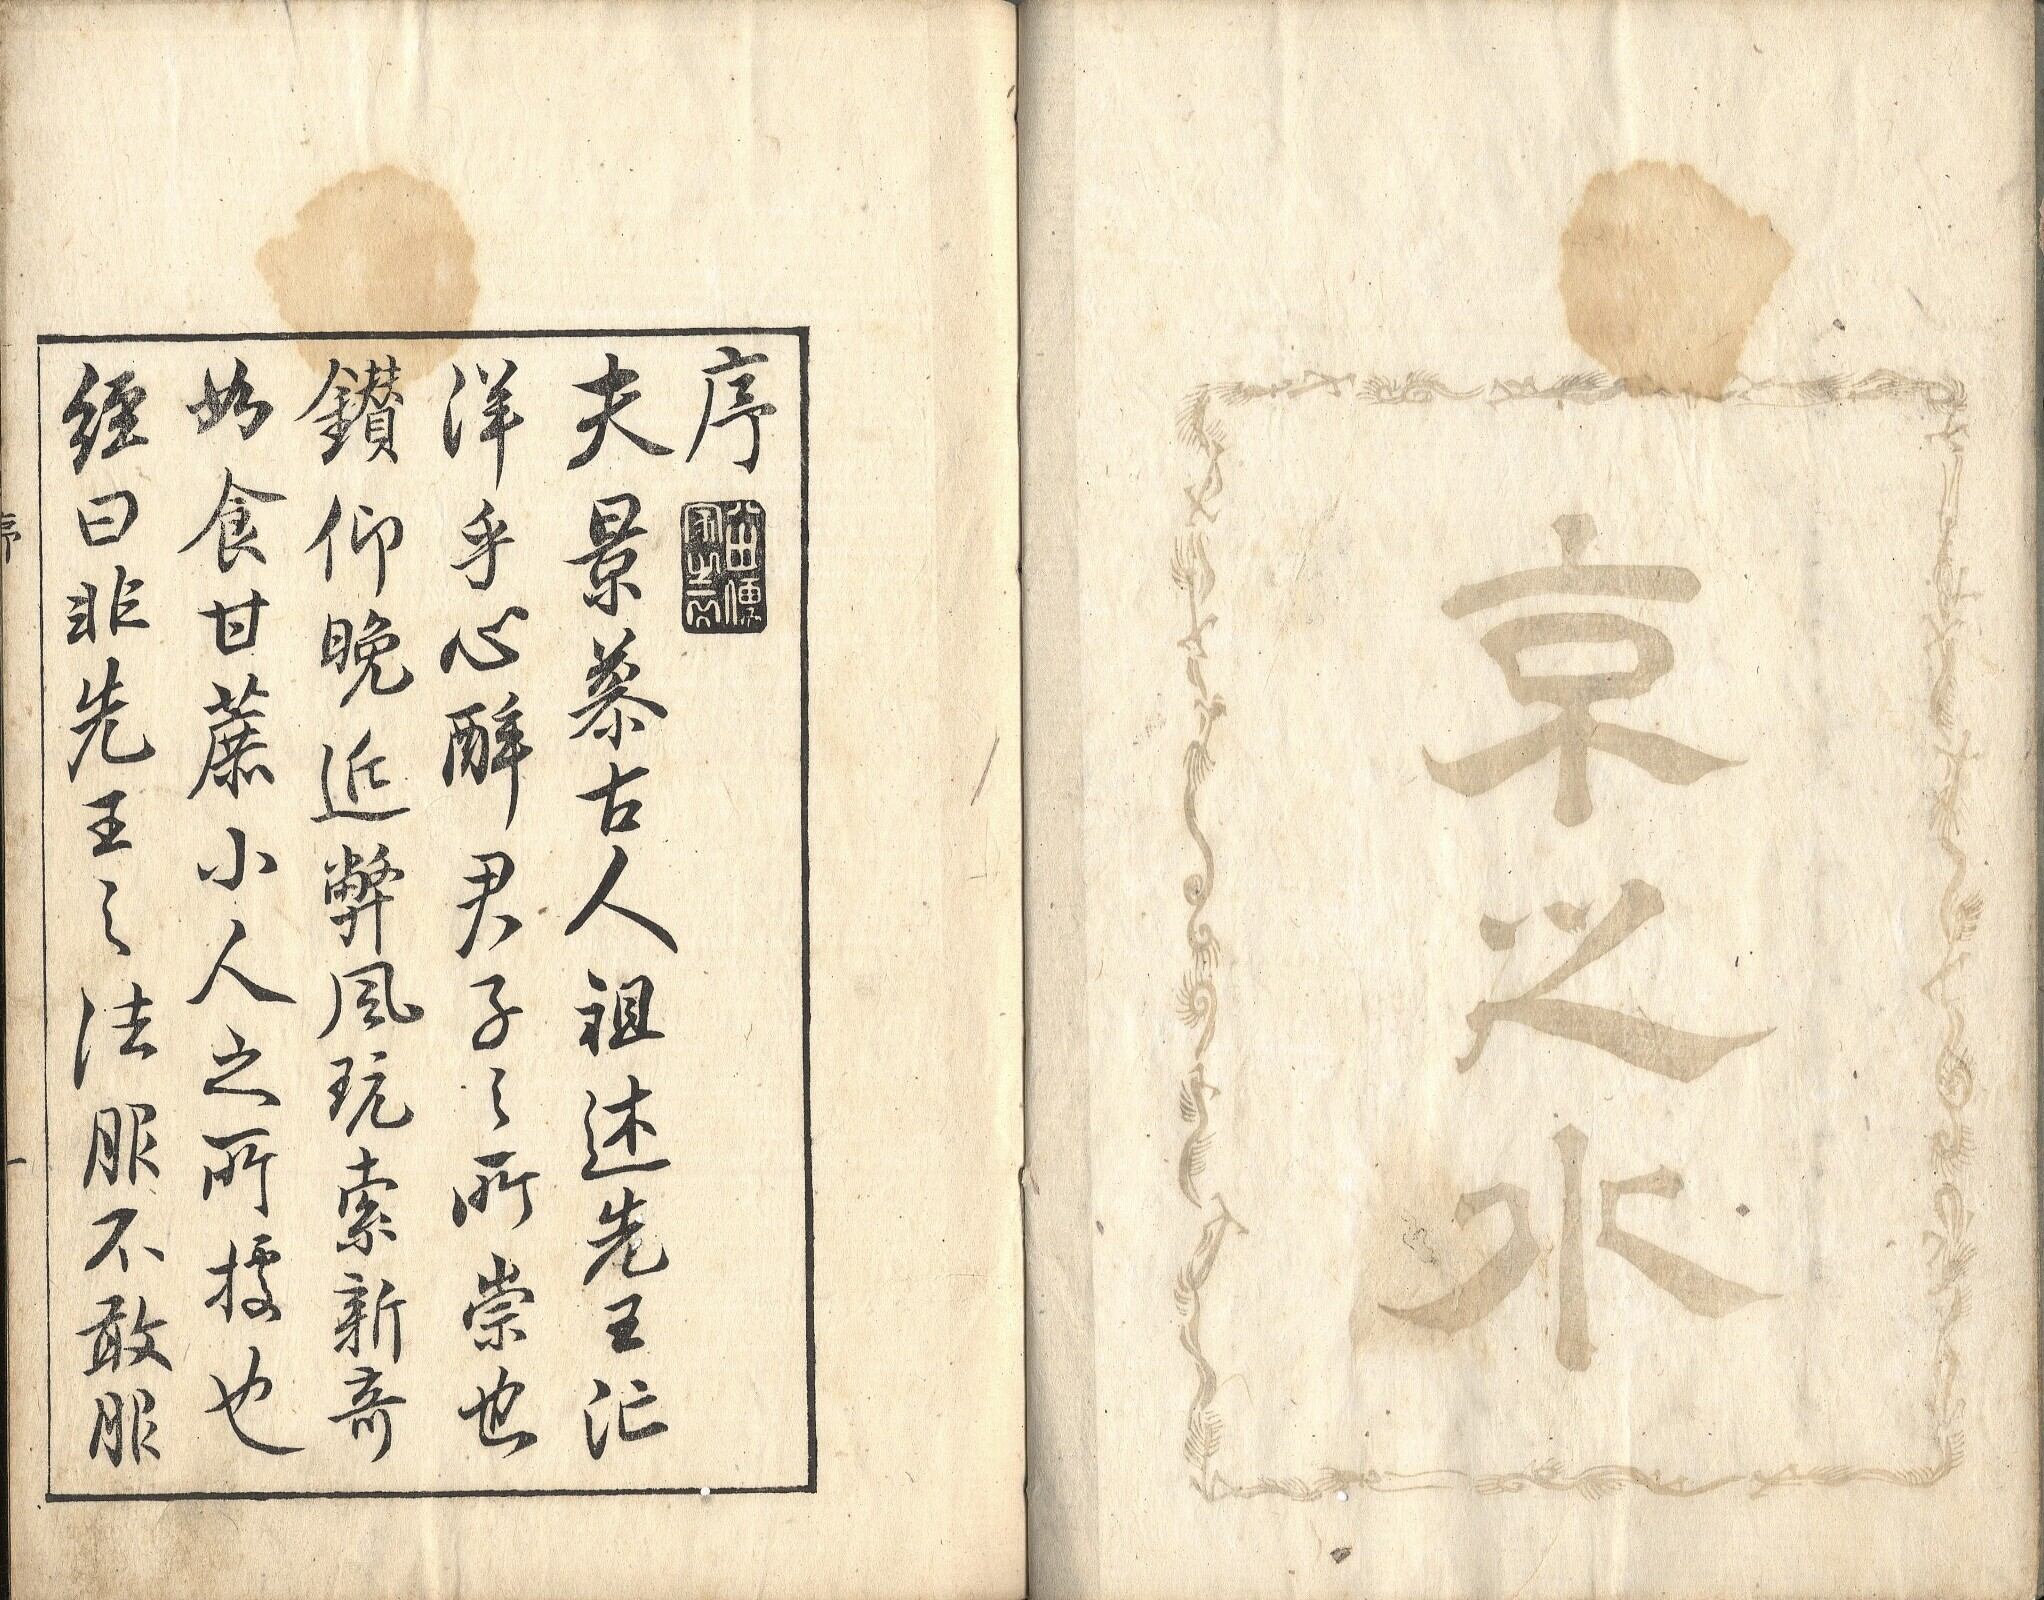 京之水
序
夫景慕古人祖述先王茫
洋乎心醉君子之所崇也
鑚仰晩近弊風玩索新奇
如食甘蔗小人之所擾也
經曰非先王之法服不敢服
序
一